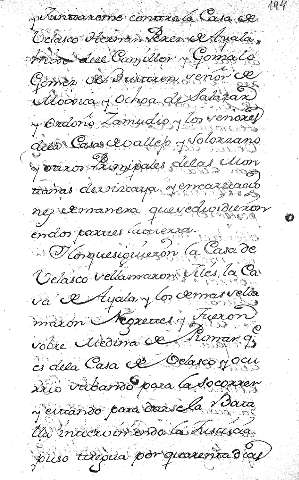 194
Juntaronse contra la Casa de
Velasco Hernan Perez de Ayala
Gonzalo
Gomez de Butron señor de
Moxica y Ochoa de Salazar
y Ordoño Zamudio y los señores
dela Casa de Vallejo y Solorzano
y otros Principales delas Mon
tañas de Vizcaya y encartacio
nes de manera que se dividieron
endos partes la tierra.
Y los que siguieron la Casa de
Velasco se llamaron Giles, la Ca
sa de Ayala y los demas se lla
maron Negretes y fueron
sobre Medina de Pomar, q̃
es dela Casa de Velasco y acu
para la Socorrer
y estando para darse la Bata
lla la Justicia
puso tregua por quarenta dias